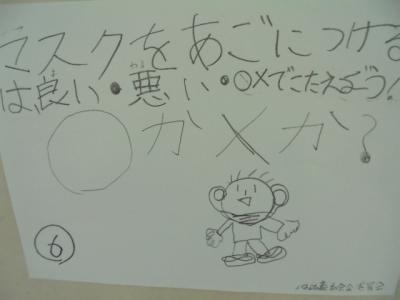 マスクをあごにつける
は良い・悪い・○×でこたえるぞう!
○か×か?
⑥